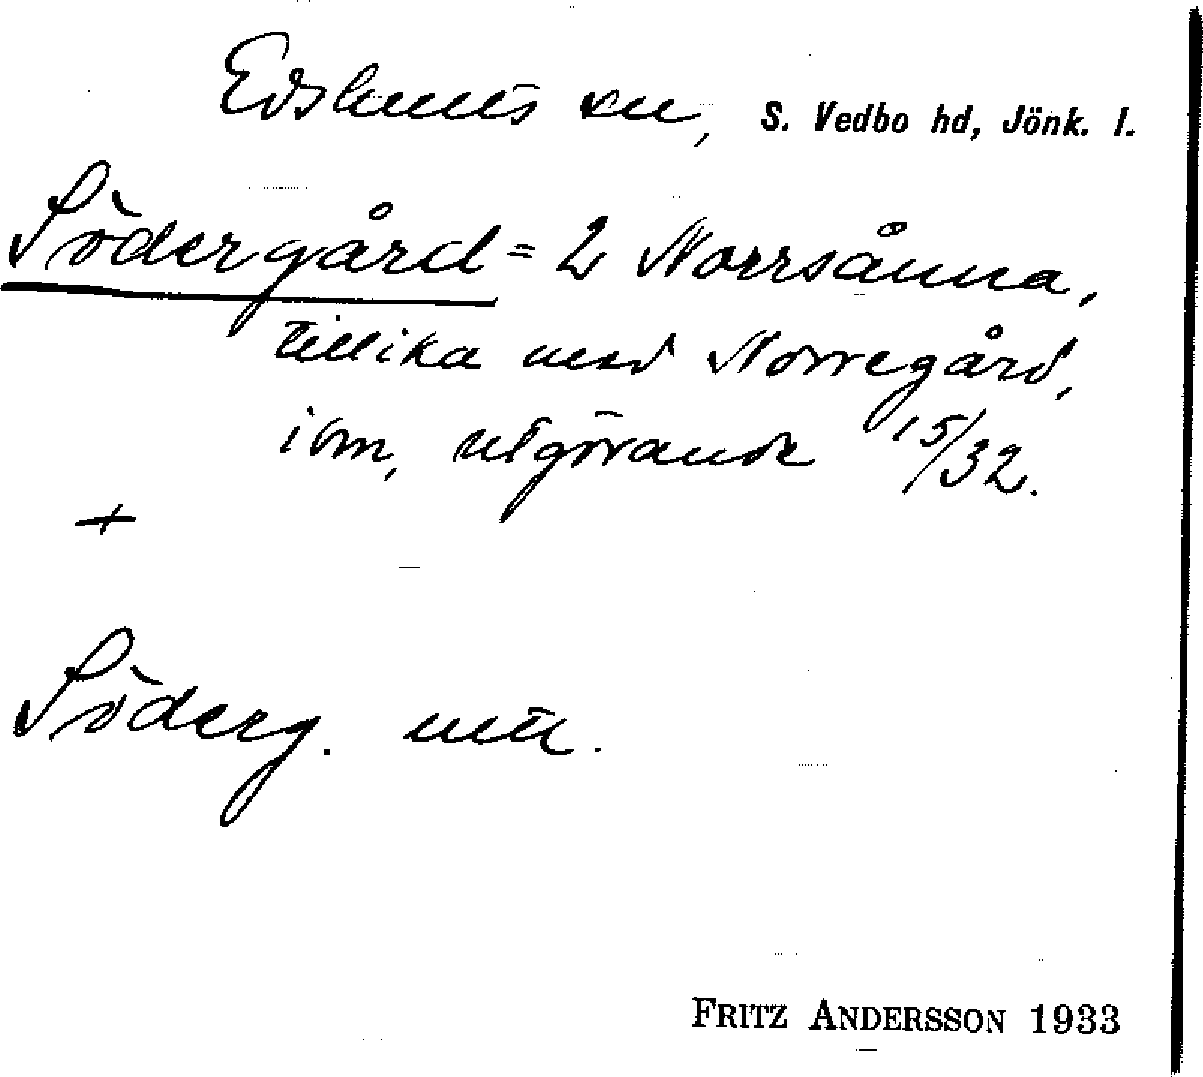 Edshults sn, S. Vedbo hd, Jönk. l.
Södergård = 2 Norrsånna,
tillika med Norregård,
ibm, utgörande 15/32.
+
Söderg.
FRITZ ANDERSSON 1933